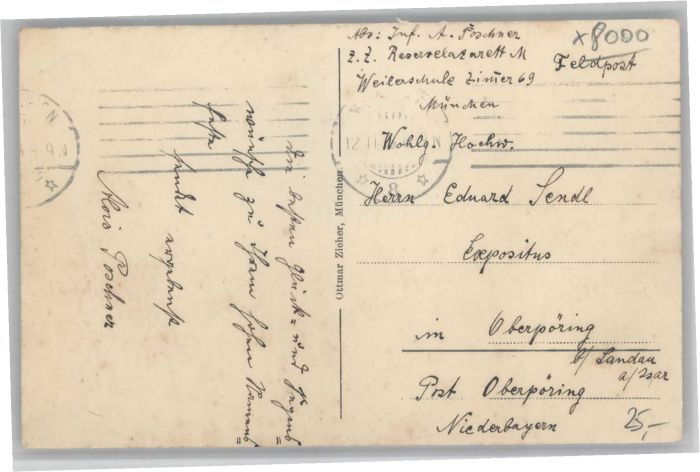 Abs: Inf. A. Poschner
z. Z. Reservelazarett M
Weilerschule Zimmer 69
München
x8000
Feldpost
Wohlg. Hochw.
Herrn Eduard Sendl
Expositus
in Oberpöring
b/ Landau
a/Isar
Post Oberpöring
Niederbayern
25,-
Ottmar Zieher, München
12 II
8
Die besten Glück= und Segens=
wünsche zu Ihrem hohen Namens=
feste
sendet ergebenst
Alois Poschner